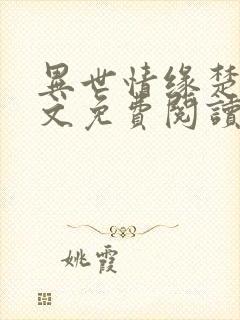 異世情缘楚
文免費閱讀
姚霞